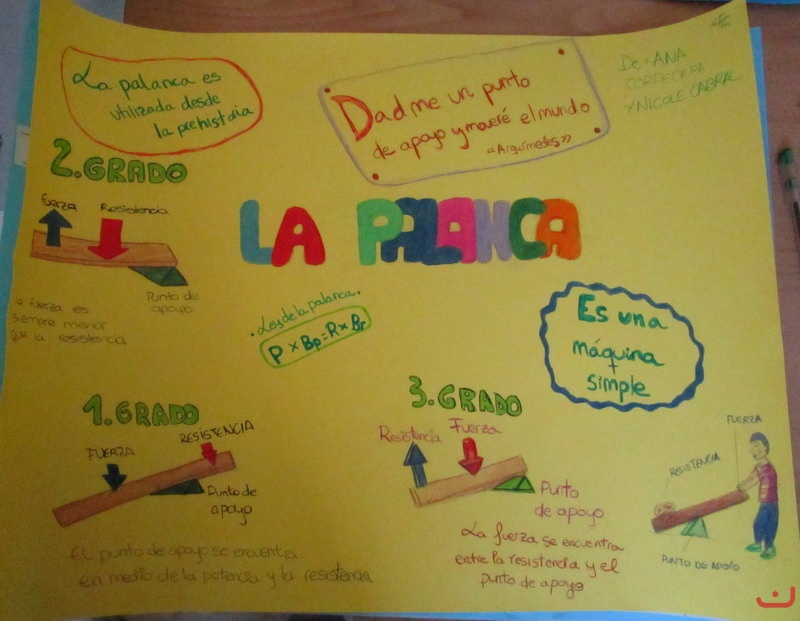 La palanca es
utilizada desde
la prehistoria
Dad me un punto
de apoyo y moveré el mundo
«Arquímedes»
De = ANA
CORREDERA
Y NICOLE CABRAL
2.GRADO
fuerza
Resistencia
Punto de
apoyo
la fuerza es
siempre menor
que la resistencia
LA PALANCA
• Ley de la palanca •
P x Bp = R x Br
Es una
máquina
simple
1.GRADO
FUERZA
RESISTENCIA
Punto de
apoyo
El punto de apoyo se encuentra
en medio de la potencia y la resistencia
3.GRADO
Resistencia
Fuerza
Punto
de apoyo
La fuerza se encuentra
entre la resistencia y el
punto de apoyo
FUERZA
RESISTENCIA
PUNTO DE APOYO